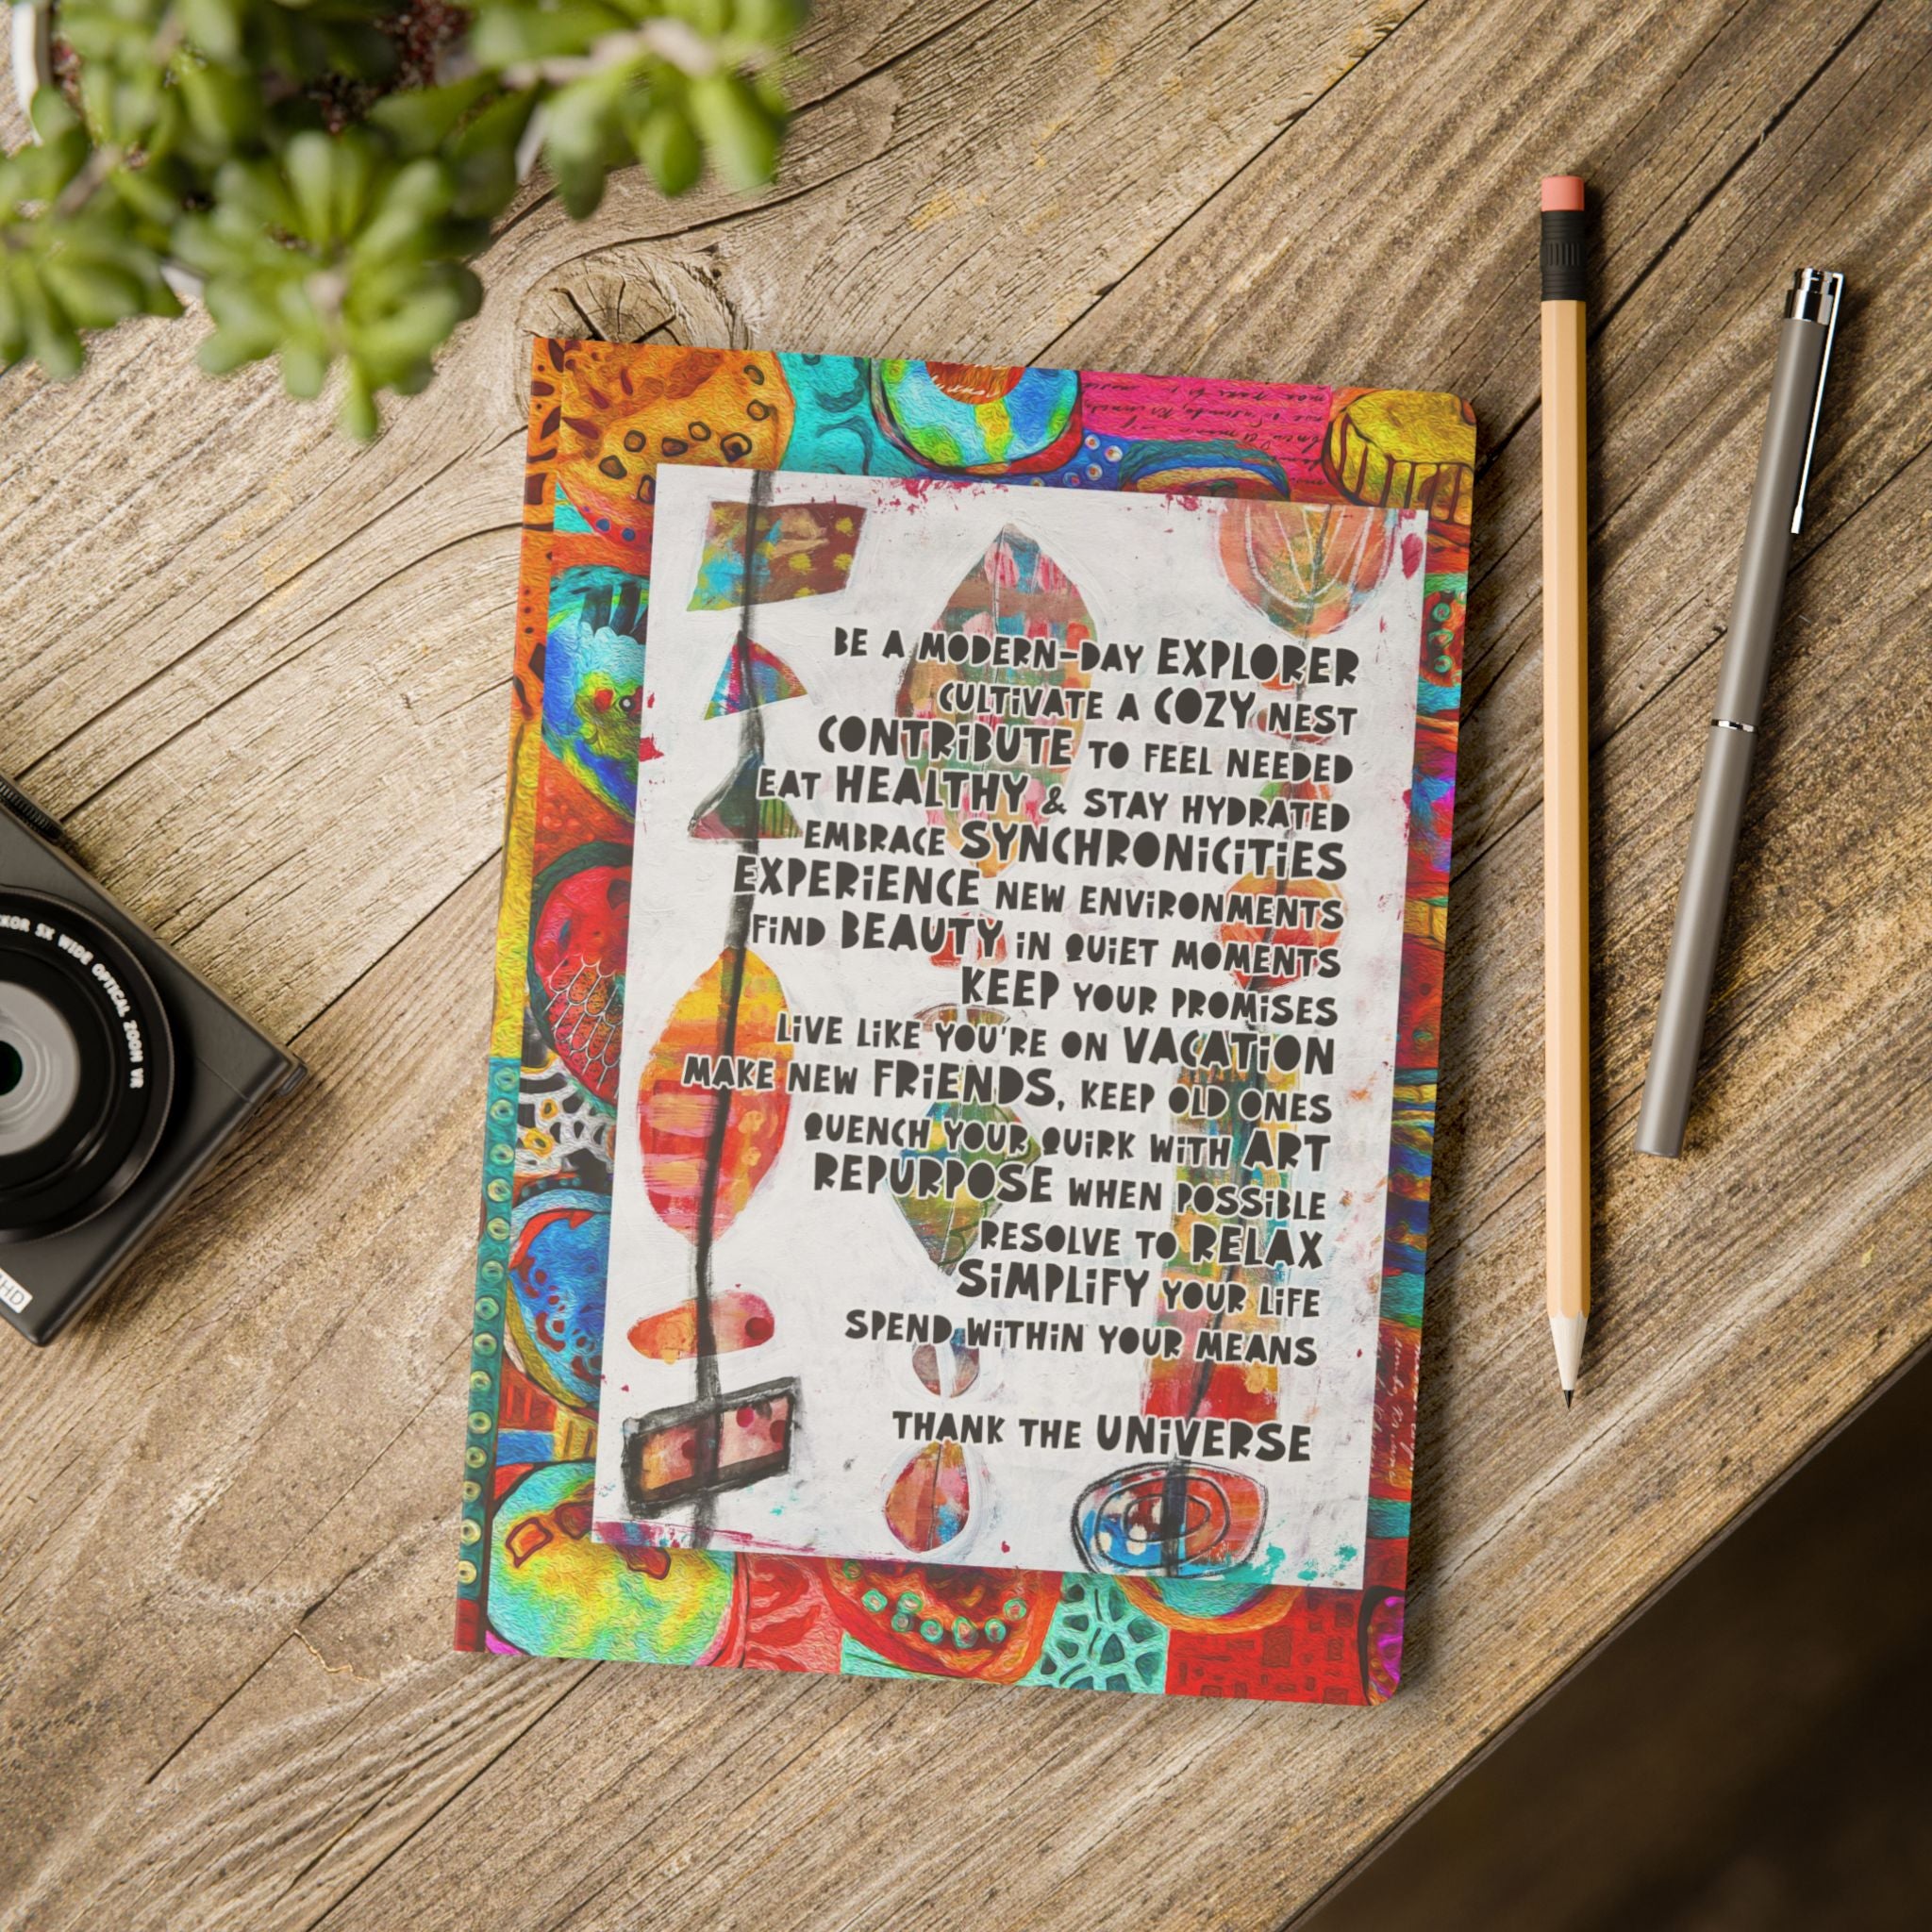 BE A MODERN-DAY EXPLORER
CULTIVATE A COZY NEST
CONTRIBUTE TO FEEL NEEDED
EAT HEALTHY & STAY HYDRATED
EMBRACE SYNCHRONICITIES
EXPERIENCE NEW ENVIRONMENTS
FIND BEAUTY IN QUIET MOMENTS
KEEP YOUR PROMISES
LIVE LIKE YOU'RE ON VACATION
MAKE NEW FRIENDS, KEEP OLD ONES
QUENCH YOUR QUIRK WITH ART
REPURPOSE WHEN POSSIBLE
RESOLVE TO RELAX
SIMPLIFY YOUR LIFE
SPEND WITHIN YOUR MEANS
THANK THE UNIVERSE
5X WIDE OPTICAL ZOOM VR
HD